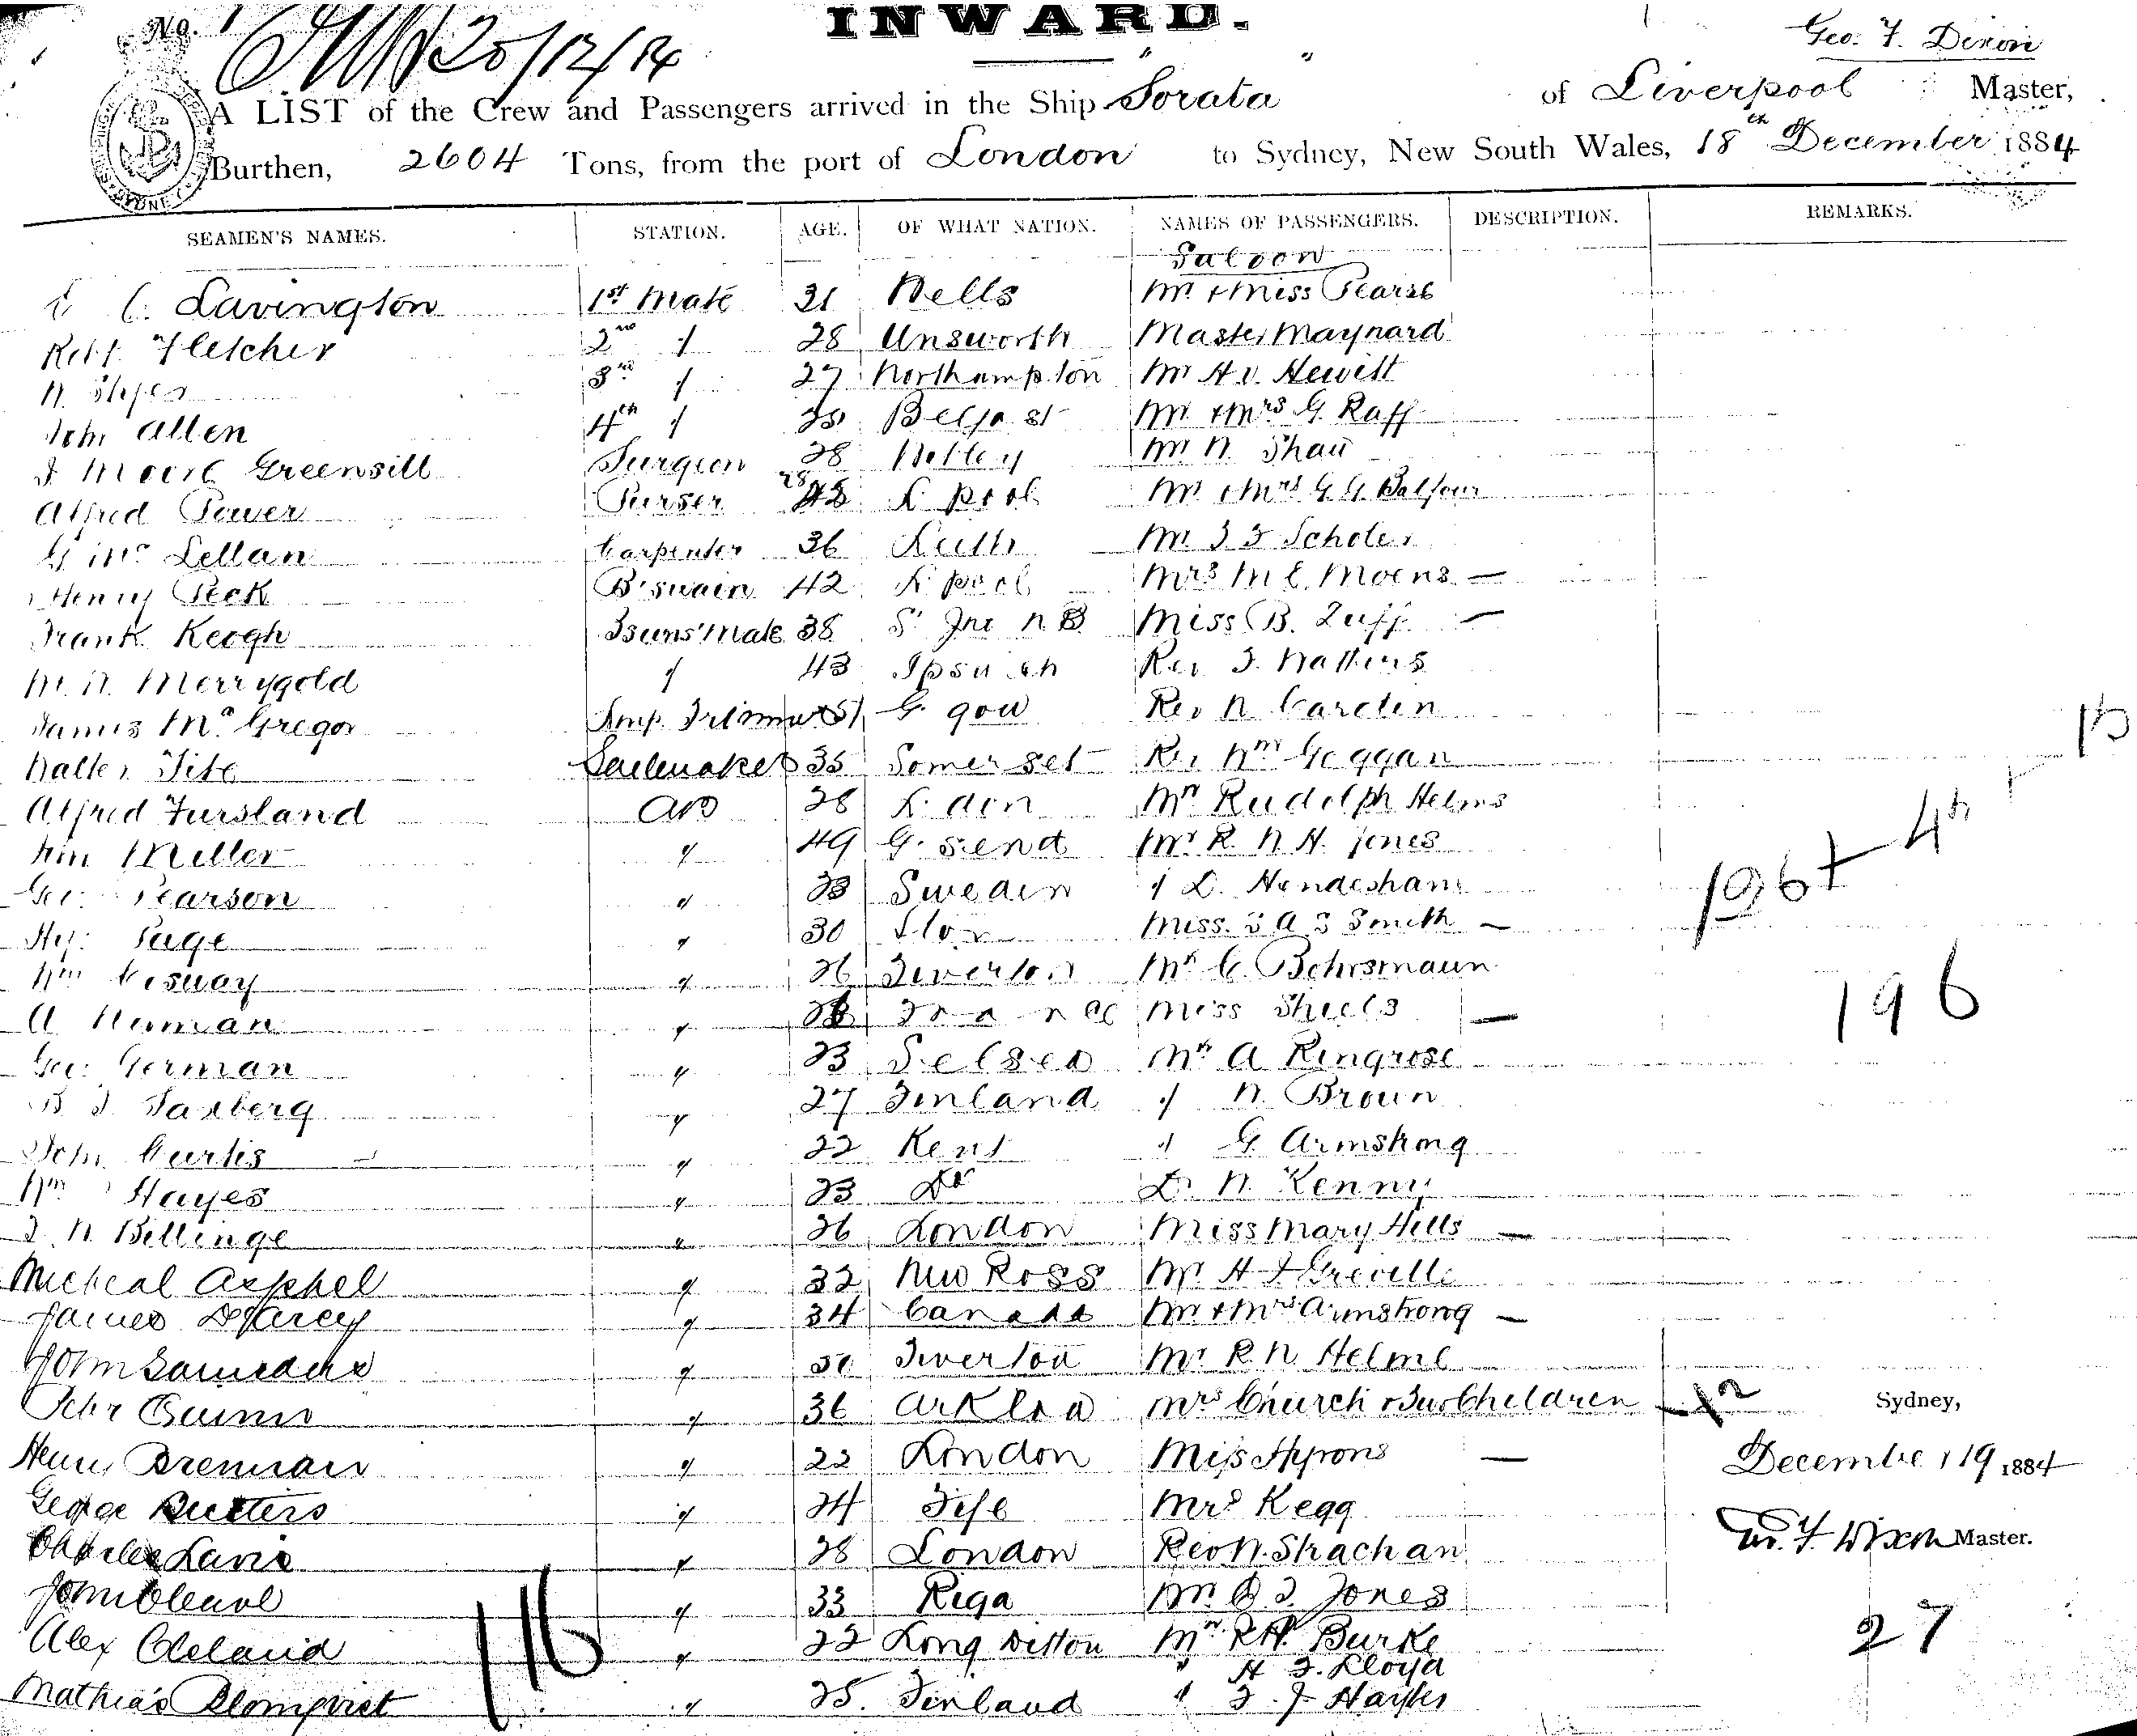 No.
INWARD.
Geo. F. Dixon
20/12/84
A LIST of the Crew and Passengers arrived in the Ship "Sorata" of Liverpool Master,
Burthen, 2604 Tons, from the port of London to Sydney, New South Wales, 18th December 1884
SEAMEN'S NAMES. STATION. AGE. OF WHAT NATION. NAMES OF PASSENGERS. DESCRIPTION. REMARKS.
Saloon
Lavington 1st Mate 31 Wells Mr & Miss Pearse
Robt. Fletcher 2nd " 28 Unsworth Master Maynard
W. 3rd " 27 Northampton Mr H. V. Hewitt
John Allen 4th " Belfast Mr & Mrs G. Raff
Moore Greensill Surgeon 28 Mr W. Shaw
Alfred Power Purser 28 L'pool Mr & Mrs G. G. Balfour
G. Mc Lellan Carpenter 36 Leith Mr Scholes
Henry Peck B'swain 42 L'pool Mrs M. E. Moens —
Frank Keogh Bsuns' Mate 38 St Jno N.B. Miss B. Luff —
W. Merrygold " 43 Ipswich Rev
James Mc Gregor Lmp. Trimmer G. gow Rev W. Carden
Walter Tite Sailmaker 35 Somerset Rev Wm Geggan
Alfred Fursland AB 28 L. don Mr Rudolph Helms
Wm Miller " 49 G. send Mr R. W. H. Jones
Geo: Pearson " 23 Sweden " L. Hendesham
Hy: Page " 30 Miss S A S Smith —
Wm " 26 Tiverton Mr C. Bohrsmann
A. " France Miss Shiels —
Geo: German " 23 Selsea Mr A Ringrose
B. Saxberg " 27 Finland " W. Brown
John Curtis " 22 Kent " G. Armstrong
Wm Hayes " 23 Do Dr W. Kenny
J. W. Billinge " 26 London Miss Mary Hills —
Micheal " 32 New Ross Mr H Greville
James Darcy " 34 Canada Mr & Mrs Armstrong —
John Saunders " Tiverton Mr R. W. Helme
" 36 Arklow Mrs Church & Two Children 2
Henry Brennan " 22 London Miss Hyrons —
George Butters " 24 Fife Mrs Kegg
Charles " 28 London Rev W. Strachan
John " 33 Riga Mr Jones
Alex Cleland " 22 Long Ditton Mr R H. Burke
" H. Lloyd
Mathias Blomqvist " 25. Finland " Hayter
116
196
196
Sydney,
December 19 1884
Geo. F. Dixon Master.
27